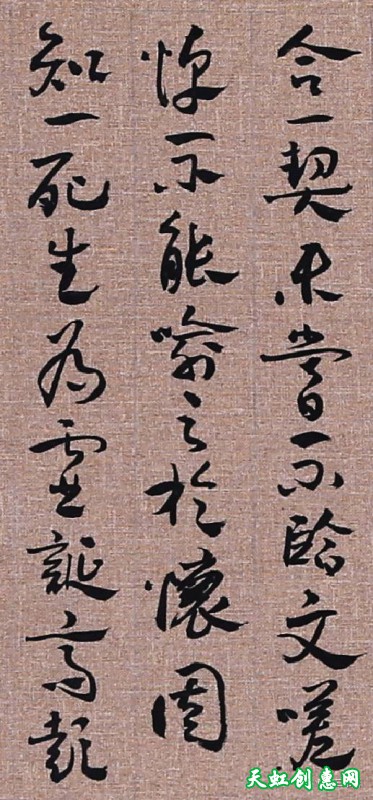 合一契未嘗不臨文嗟
悼不能喻之於懷固
知一死生為虛誕齊彭
天虹创惠网